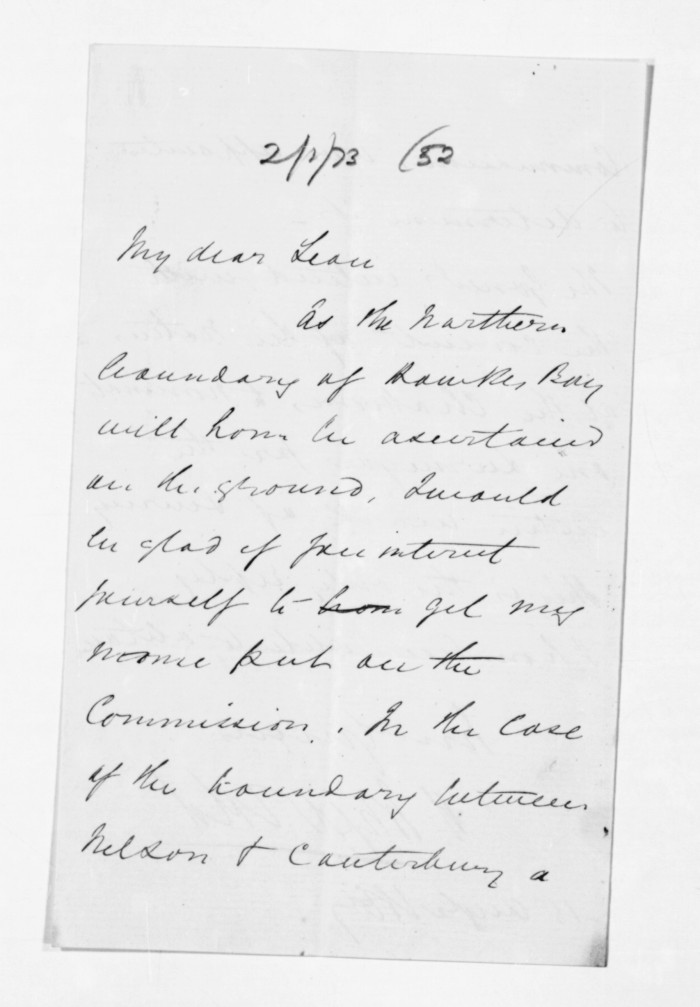 2/1/73 (52
My dear Lean
As the Northern
boundary of Hawkes Bay
will have to be ascertained
on the ground, I would
be glad if you interest
yourself to get my
name put on the
Commission. In the case
of the boundary between
Nelson & Canterbury a